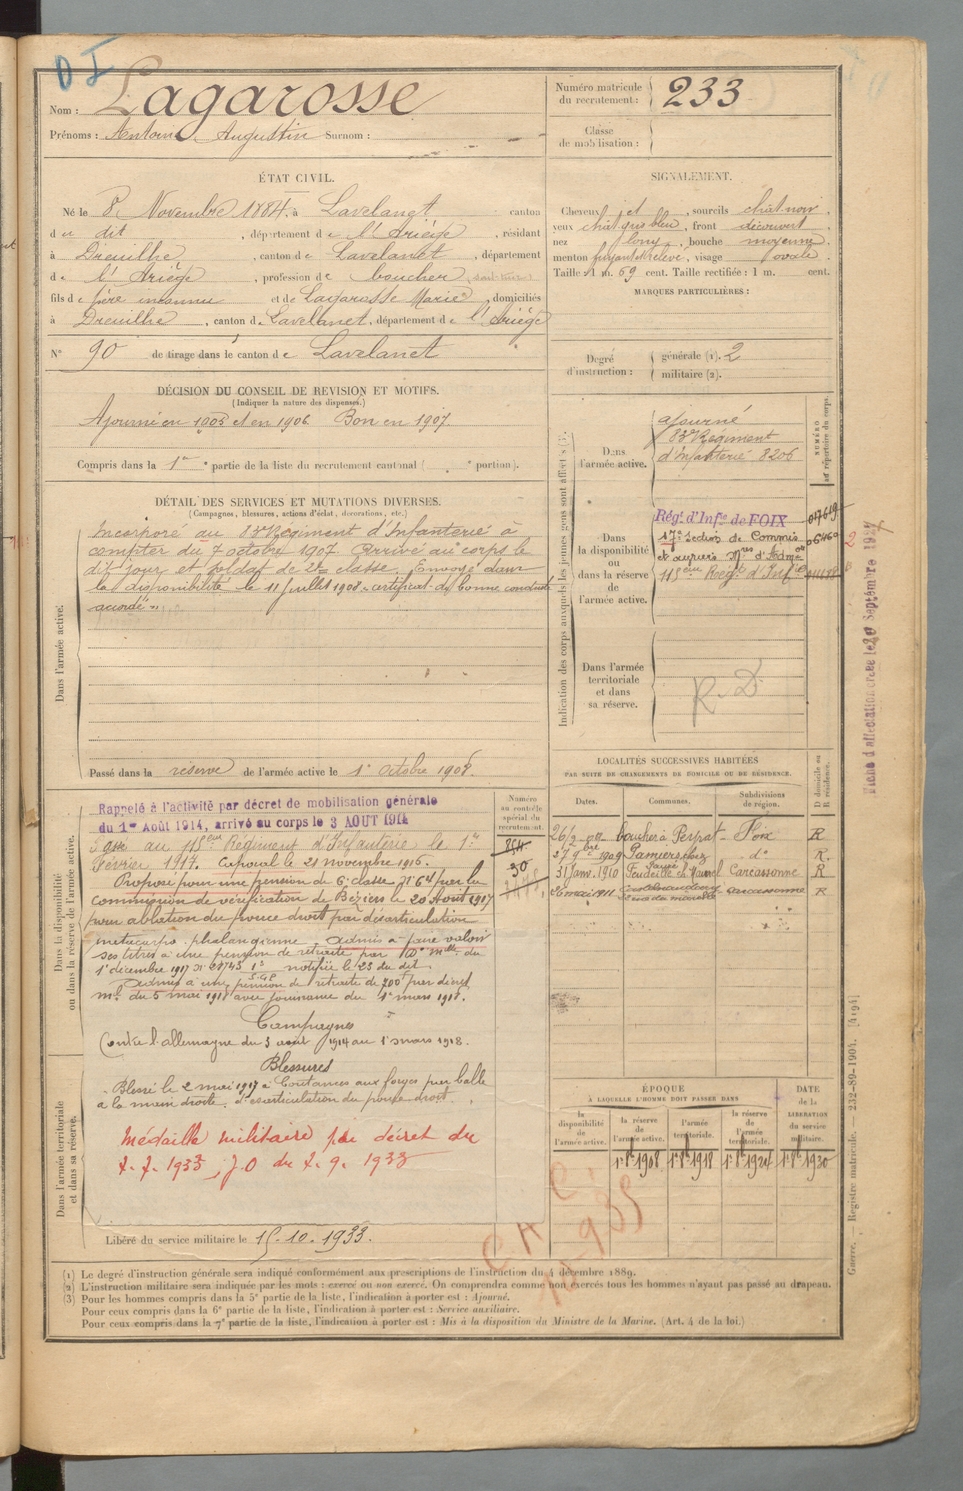 Nom : Lagarosse
Prénoms : Antoine Augustin Surnom :
Numéro matricule du recrutement : 233
Classe de mobilisation :
ÉTAT CIVIL.
Né le 8 Novembre 1884, à Lavelanet canton
du dit, département de l'Ariège, résidant
à Dreuilhe, canton de Lavelanet, département
de l'Ariège, profession de boucher
fils de père inconnu et de Lagarosse Marie, domiciliés
à Dreuilhe, canton de Lavelanet, département de l'Ariège
N° 90 de tirage dans le canton de Lavelanet
SIGNALEMENT.
Cheveux jet, sourcils chat noir,
yeux chat gris bleu, front découvert
nez long, bouche moyenne,
menton fuyant et relevé, visage ovale.
Taille : 1 m. 69 cent. Taille rectifiée : 1 m. cent.
MARQUES PARTICULIÈRES :
Degré d'instruction :
générale (1). 2
militaire (2).
DÉCISION DU CONSEIL DE REVISION ET MOTIFS.
(Indiquer la nature des dispenses.)
Ajourné en 1905 et en 1906 Bon en 1907.
Compris dans la 1re partie de la liste du recrutement cantonal ( portion).
DÉTAIL DES SERVICES ET MUTATIONS DIVERSES.
(Campagnes, blessures, actions d'éclat, décorations, etc.)
Dans l'armée active.
Incorporé au 83e Régiment d'Infanterie à
compter du 7 octobre 1907. Arrivé au corps le
dit jour et soldat de 2e classe. Envoyé dans
la disponibilité le 11 Juillet 1908. certificat de bonne conduite
accordé
Passé dans la réserve de l'armée active le 1er octobre 1908.
Indication des corps auxquels les jeunes gens sont affectés (3).
NUMÉRO au répertoire du corps.
Dans l'armée active.
ajourné
83e Régiment
d'Infanterie 8206
Dans la disponibilité ou dans la réserve de l'armée active.
Régt d'Infie de FOIX 017619
17e Section de Commis
et ouvriers Mres d'Admon 06460
115ème Régt d'Infie
Dans l'armée territoriale et dans sa réserve.
R. D
Fiche d'affectation créée le 20 Septembre 1927
LOCALITÉS SUCCESSIVES HABITÉES
PAR SUITE DE CHANGEMENTS DE DOMICILE OU DE RÉSIDENCE.
Dates. Communes. Subdivisions de région. D domicile ou R résidence.
boucher à Peyrat Foix R
1909 Pamiers chez do R.
31 Janv. 1910 Fendeille Carcassonne R
26 mai 1911 Castelnaudary Carcassonne R
Dans la disponibilité ou dans la réserve de l'armée active.
Numéro au contrôle spécial du recrutement.
Rappelé à l'activité par décret de mobilisation générale
du 1er Août 1914, arrivé au corps le 3 AOUT 1914
Passé au 115ème Régiment d'Infanterie le 1er
Février 1917. Caporal le 21 novembre 1916.
Proposé pour une pension de 6e classe No 64 par la
Commission de vérification de Béziers le 20 Août 1917
pour ablation du pouce droit par désarticulation
métacarpo-phalangienne. Admis à faire valoir
ses titres à une pension de retraite par
1er décembre 1917 notifiée le 23 du dit.
Admis à une pension de retraite de 700f par décret
du 5 mai 1918 avec jouissance du 1er mars 1918.
Campagnes
Contre l'allemagne du 3 août 1914 au 1er mars 1918.
Blessures
Blessé le 2 mai 1917 à Coutances aux forges par balle
à la main droite. désarticulation du pouce droit.
Dans l'armée territoriale et dans sa réserve.
Médaille militaire par décret du
J.O du 7. 9. 1933
Libéré du service militaire le 15. 10. 1933.
ÉPOQUE
À LAQUELLE L'HOMME DOIT PASSER DANS
la disponibilité de l'armée active. la réserve de l'armée active. l'armée territoriale. la réserve de l'armée territoriale.
DATE de la LIBÉRATION du service militaire.
1er 8bre 1908 1er 8bre 1918 1er 8bre 1924 1er 8bre 1930
(1) Le degré d'instruction générale sera indiqué conformément aux prescriptions de l'instruction du 4 décembre 1889.
(2) L'instruction militaire sera indiquée par les mots : exercé ou non exercé. On comprendra comme non exercés tous les hommes n'ayant pas passé au drapeau.
(3) Pour les hommes compris dans la 5e partie de la liste, l'indication à porter est : Ajourné.
Pour ceux compris dans la 6e partie de la liste, l'indication à porter est : Service auxiliaire.
Pour ceux compris dans la 7e partie de la liste, l'indication à porter est : Mis à la disposition du Ministre de la Marine. (Art. 4 de la loi.)
Guerre. — Registre matricule. — 232-89-1904. [4194]